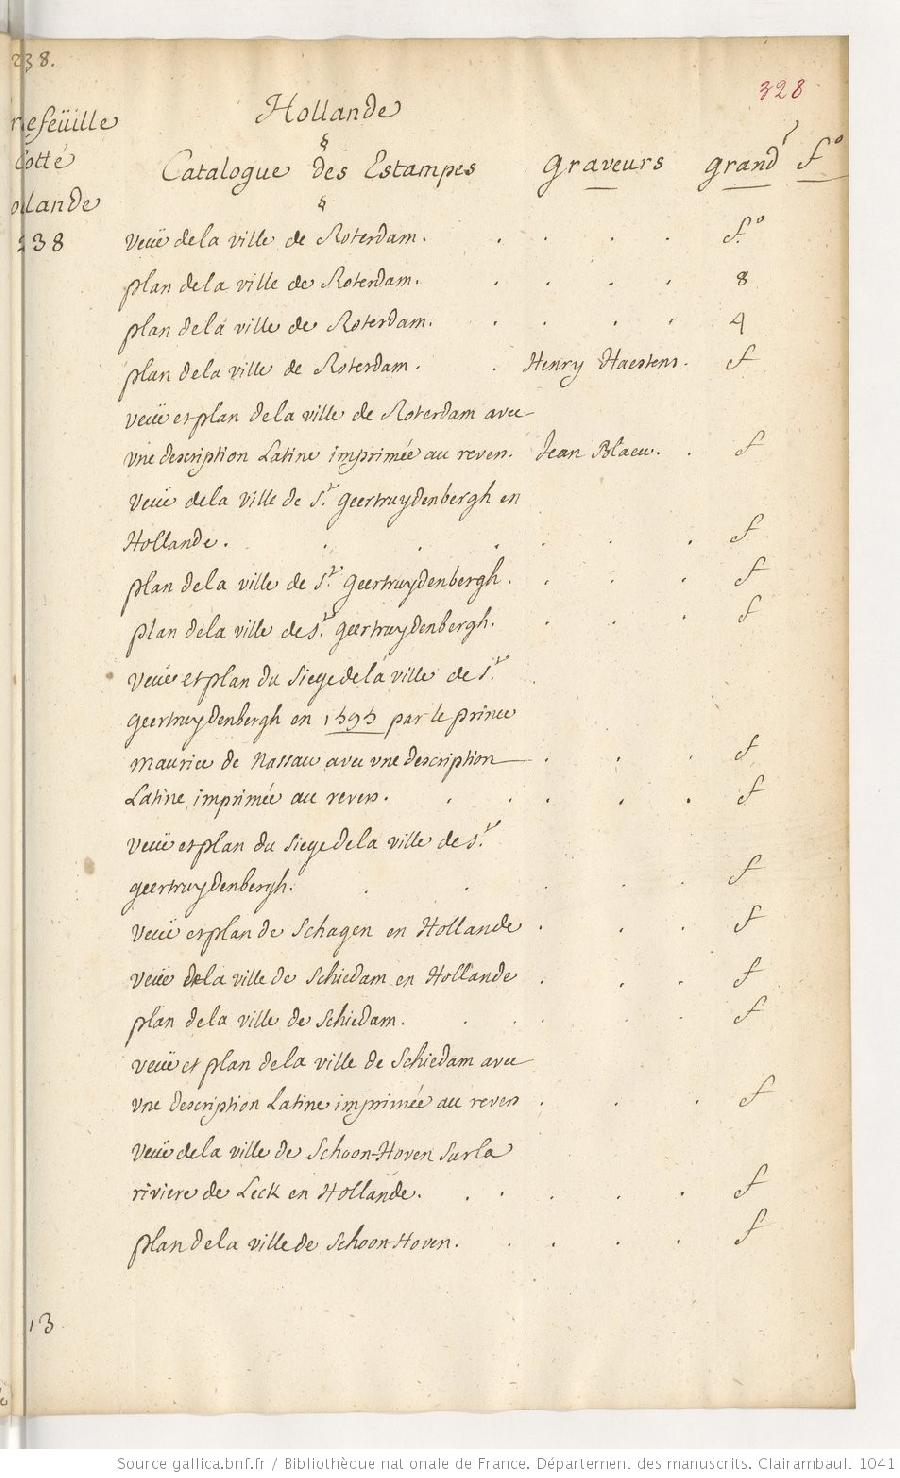 238.
328
Hollande
refeüille
Cotté
ollande
238
Catalogue des Estampes Graveurs grand.r f.o
veüe de la ville de Roterdam. f.o
plan de la ville de Roterdam. 8
plan de la ville de Roterdam. 4
plan de la ville de Roterdam. Henry Haestens. f
veüe et plan de la ville de Roterdam avec
vne description Latine imprimée au revers. Jean Blaeu. f
veüe de la ville de S.t geertruydenbergh en
Hollande. f
plan de la ville de S.t geertruydenbergh. f
plan de la ville de S.t geertruydenbergh. f
veüe et plan du siege de la ville de S.t
geertruydenbergh en 1593 par le prince
maurice de Nassau avec vne description f
Latine imprimée au revers. f
veüe et plan du siege de la ville de S.t
geertruydenbergh. f
veüe et plan de Schagen en Hollande f
veüe de la ville de Schiedam en Hollande f
plan de la ville de Schiedam. f
veüe et plan de la ville de Schiedam avec
vne description Latine imprimée au revers f
veüe de la ville de Schoon-Hoven sur la
riviere de Leck en Hollande. f
plan de la ville de Schoon Hoven. f
13
Source gallica.bnf.fr / Bibliothèque nationale de France. Département des manuscrits. Clairambault. 1041